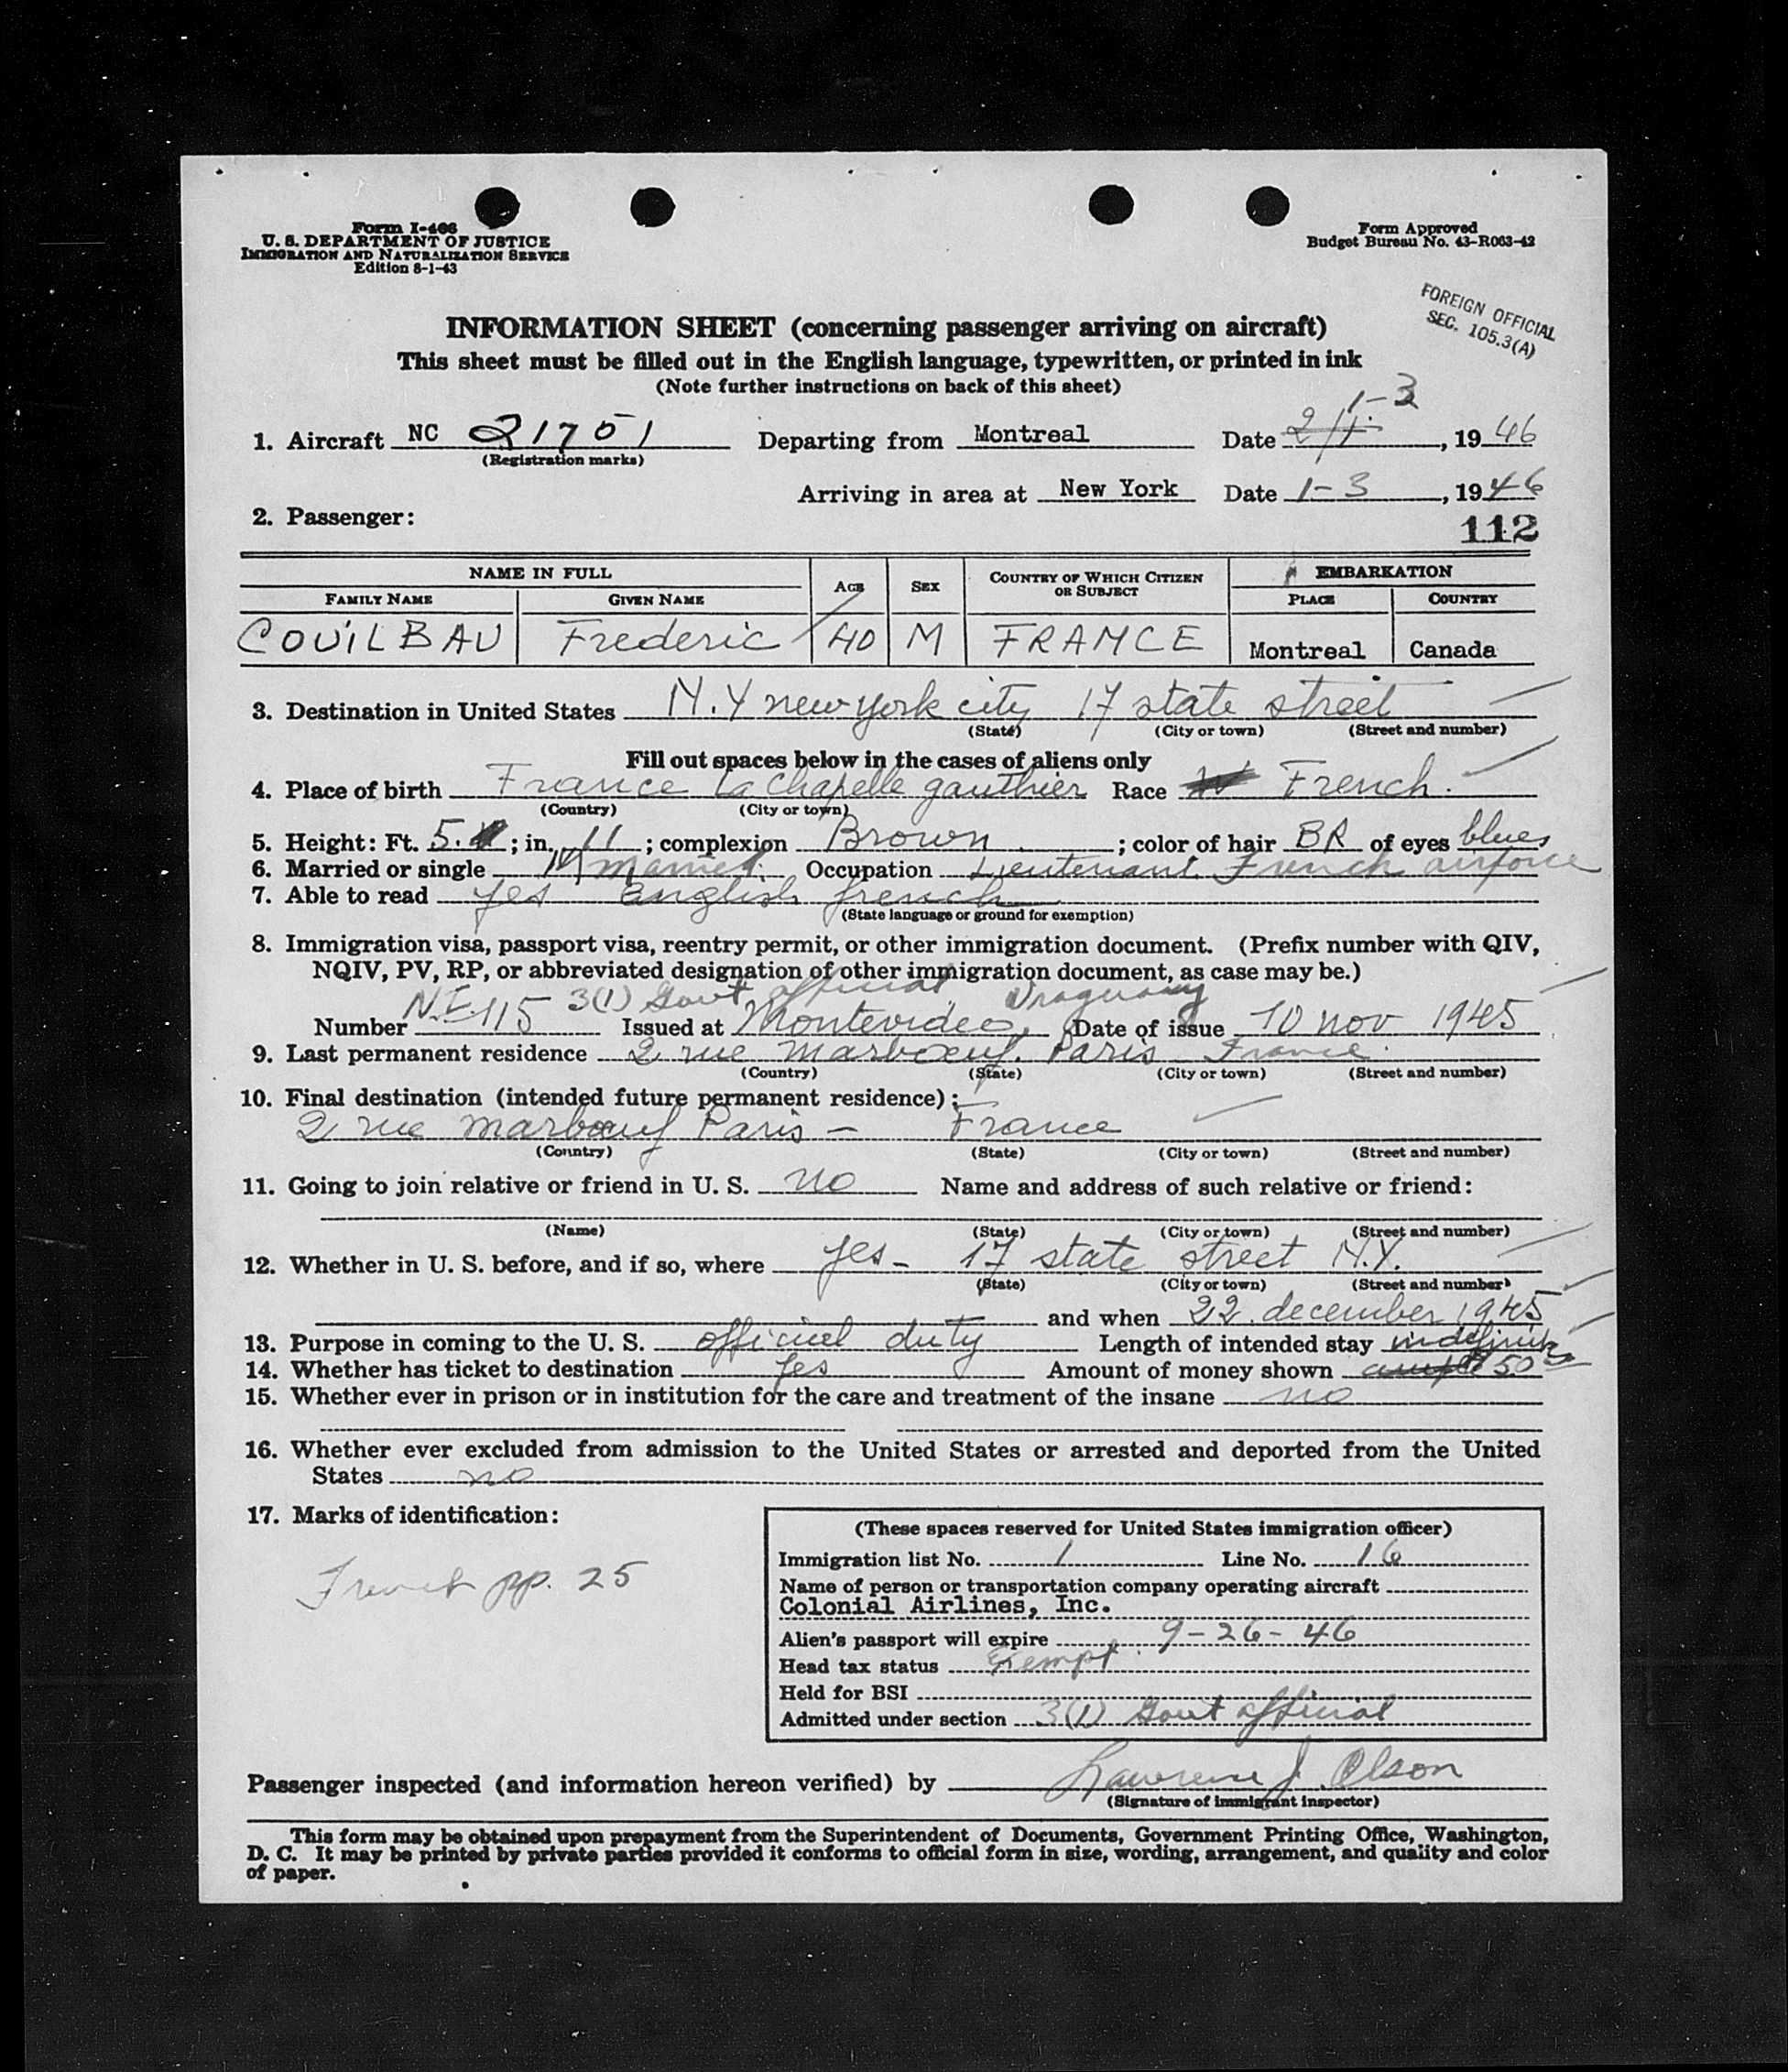 Form I-466
U. S. DEPARTMENT OF JUSTICE
IMMIGRATION AND NATURALIZATION SERVICE
Edition 8-1-43
Form Approved
Budget Bureau No. 43-R063-42
FOREIGN OFFICIAL
SEC. 105.3(A)
INFORMATION SHEET (concerning passenger arriving on aircraft)
This sheet must be filled out in the English language, typewritten, or printed in ink
(Note further instructions on back of this sheet)
1-3
1. Aircraft NC 21751 Departing from Montreal Date 2/1 , 19 46
(Registration marks)
Arriving in area at New York Date 1-3 , 19 46
2. Passenger:
112
NAME IN FULL AGE SEX COUNTRY OF WHICH CITIZEN OR SUBJECT EMBARKATION
FAMILY NAME GIVEN NAME PLACE COUNTRY
COUILBAU Frederic 40 M FRAMCE Montreal Canada
3. Destination in United States N.Y new york city 17 state street
(State) (City or town) (Street and number)
Fill out spaces below in the cases of aliens only
4. Place of birth France La Chapelle gauthier Race French.
(Country) (City or town)
5. Height: Ft. 5. ; in. 11 ; complexion Brown ; color of hair BR of eyes blues
6. Married or single M married. Occupation Lieutenant French airforce
7. Able to read yes english french
(State language or ground for exemption)
8. Immigration visa, passport visa, reentry permit, or other immigration document. (Prefix number with QIV,
NQIV, PV, RP, or abbreviated designation of other immigration document, as case may be.)
3(1) Govt official Uraguay
Number N.I. 115 Issued at Montevideo, Date of issue 10 nov 1945
9. Last permanent residence 2 rue Marboeuf. Paris France.
(Country) (State) (City or town) (Street and number)
10. Final destination (intended future permanent residence):
2 rue Marboeuf Paris - France
(Country) (State) (City or town) (Street and number)
11. Going to join relative or friend in U. S. no Name and address of such relative or friend:
(Name) (State) (City or town) (Street and number)
12. Whether in U. S. before, and if so, where yes - 17 state street N.Y.
(State) (City or town) (Street and number)
and when 22. december 1945
13. Purpose in coming to the U. S. official duty Length of intended stay indefinite
14. Whether has ticket to destination yes Amount of money shown 50
15. Whether ever in prison or in institution for the care and treatment of the insane no
16. Whether ever excluded from admission to the United States or arrested and deported from the United
States no
17. Marks of identification:
French pp. 25
(These spaces reserved for United States immigration officer)
Immigration list No. 1 Line No. 16
Name of person or transportation company operating aircraft
Colonial Airlines, Inc.
Alien's passport will expire 9-26-46
Head tax status Exempt
Held for BSI
Admitted under section 3(1) Govt official
Passenger inspected (and information hereon verified) by Lawrence J. Olson
(Signature of immigrant inspector)
This form may be obtained upon prepayment from the Superintendent of Documents, Government Printing Office, Washington,
D. C. It may be printed by private parties provided it conforms to official form in size, wording, arrangement, and quality and color
of paper.